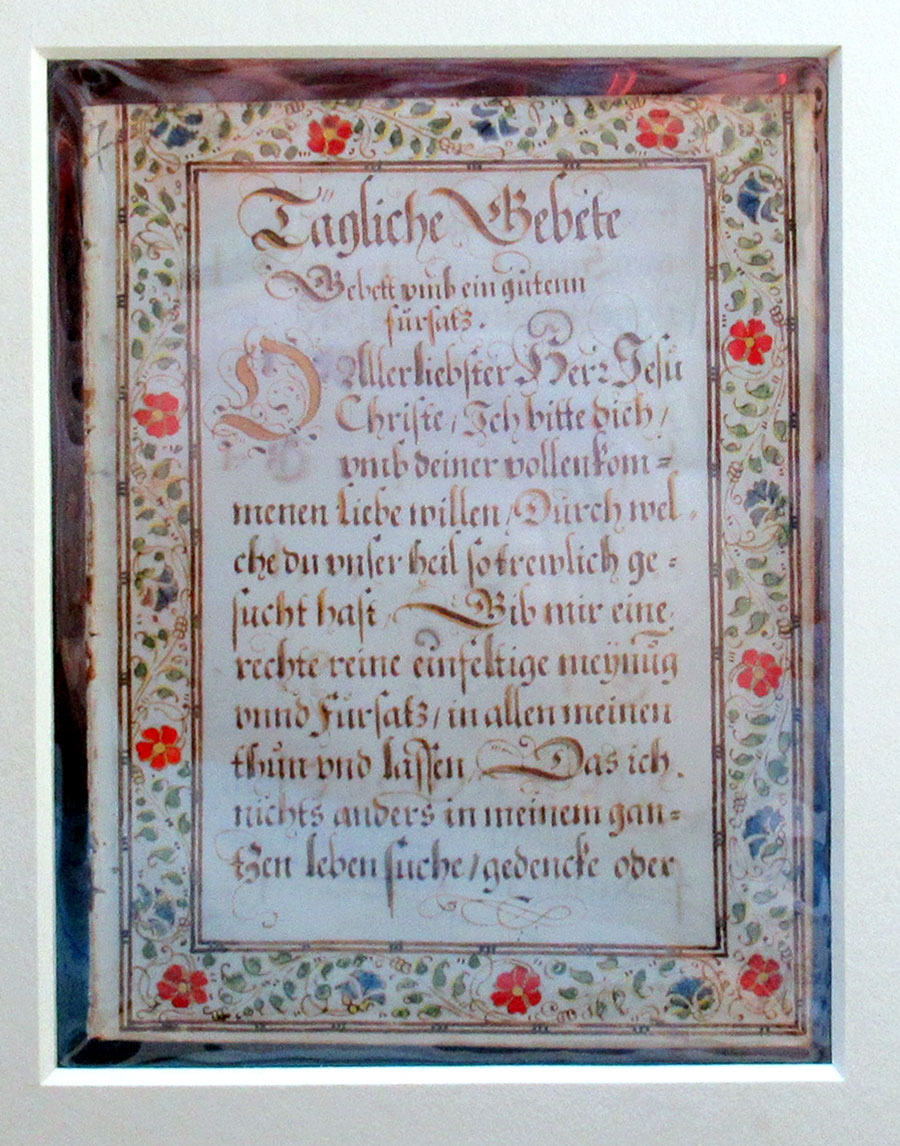 Tägliche Gebete
Gebett vmb ein gütenn
fürsatz.
O Allerliebster Herr Jesu
Christe / Ich bitte dich /
vmb deiner vollenkom=
menen Liebe willen / Durch wel=
che du vnser heil so trewlich ge=
sucht hast / Gib mir eine
rechte reine einfeltige meynūg
vnnd Fürsatz / in allen meinen
thun vnd lassen / Das ich
nichts anders in meinem gan=
tzen leben suche / gedencke oder